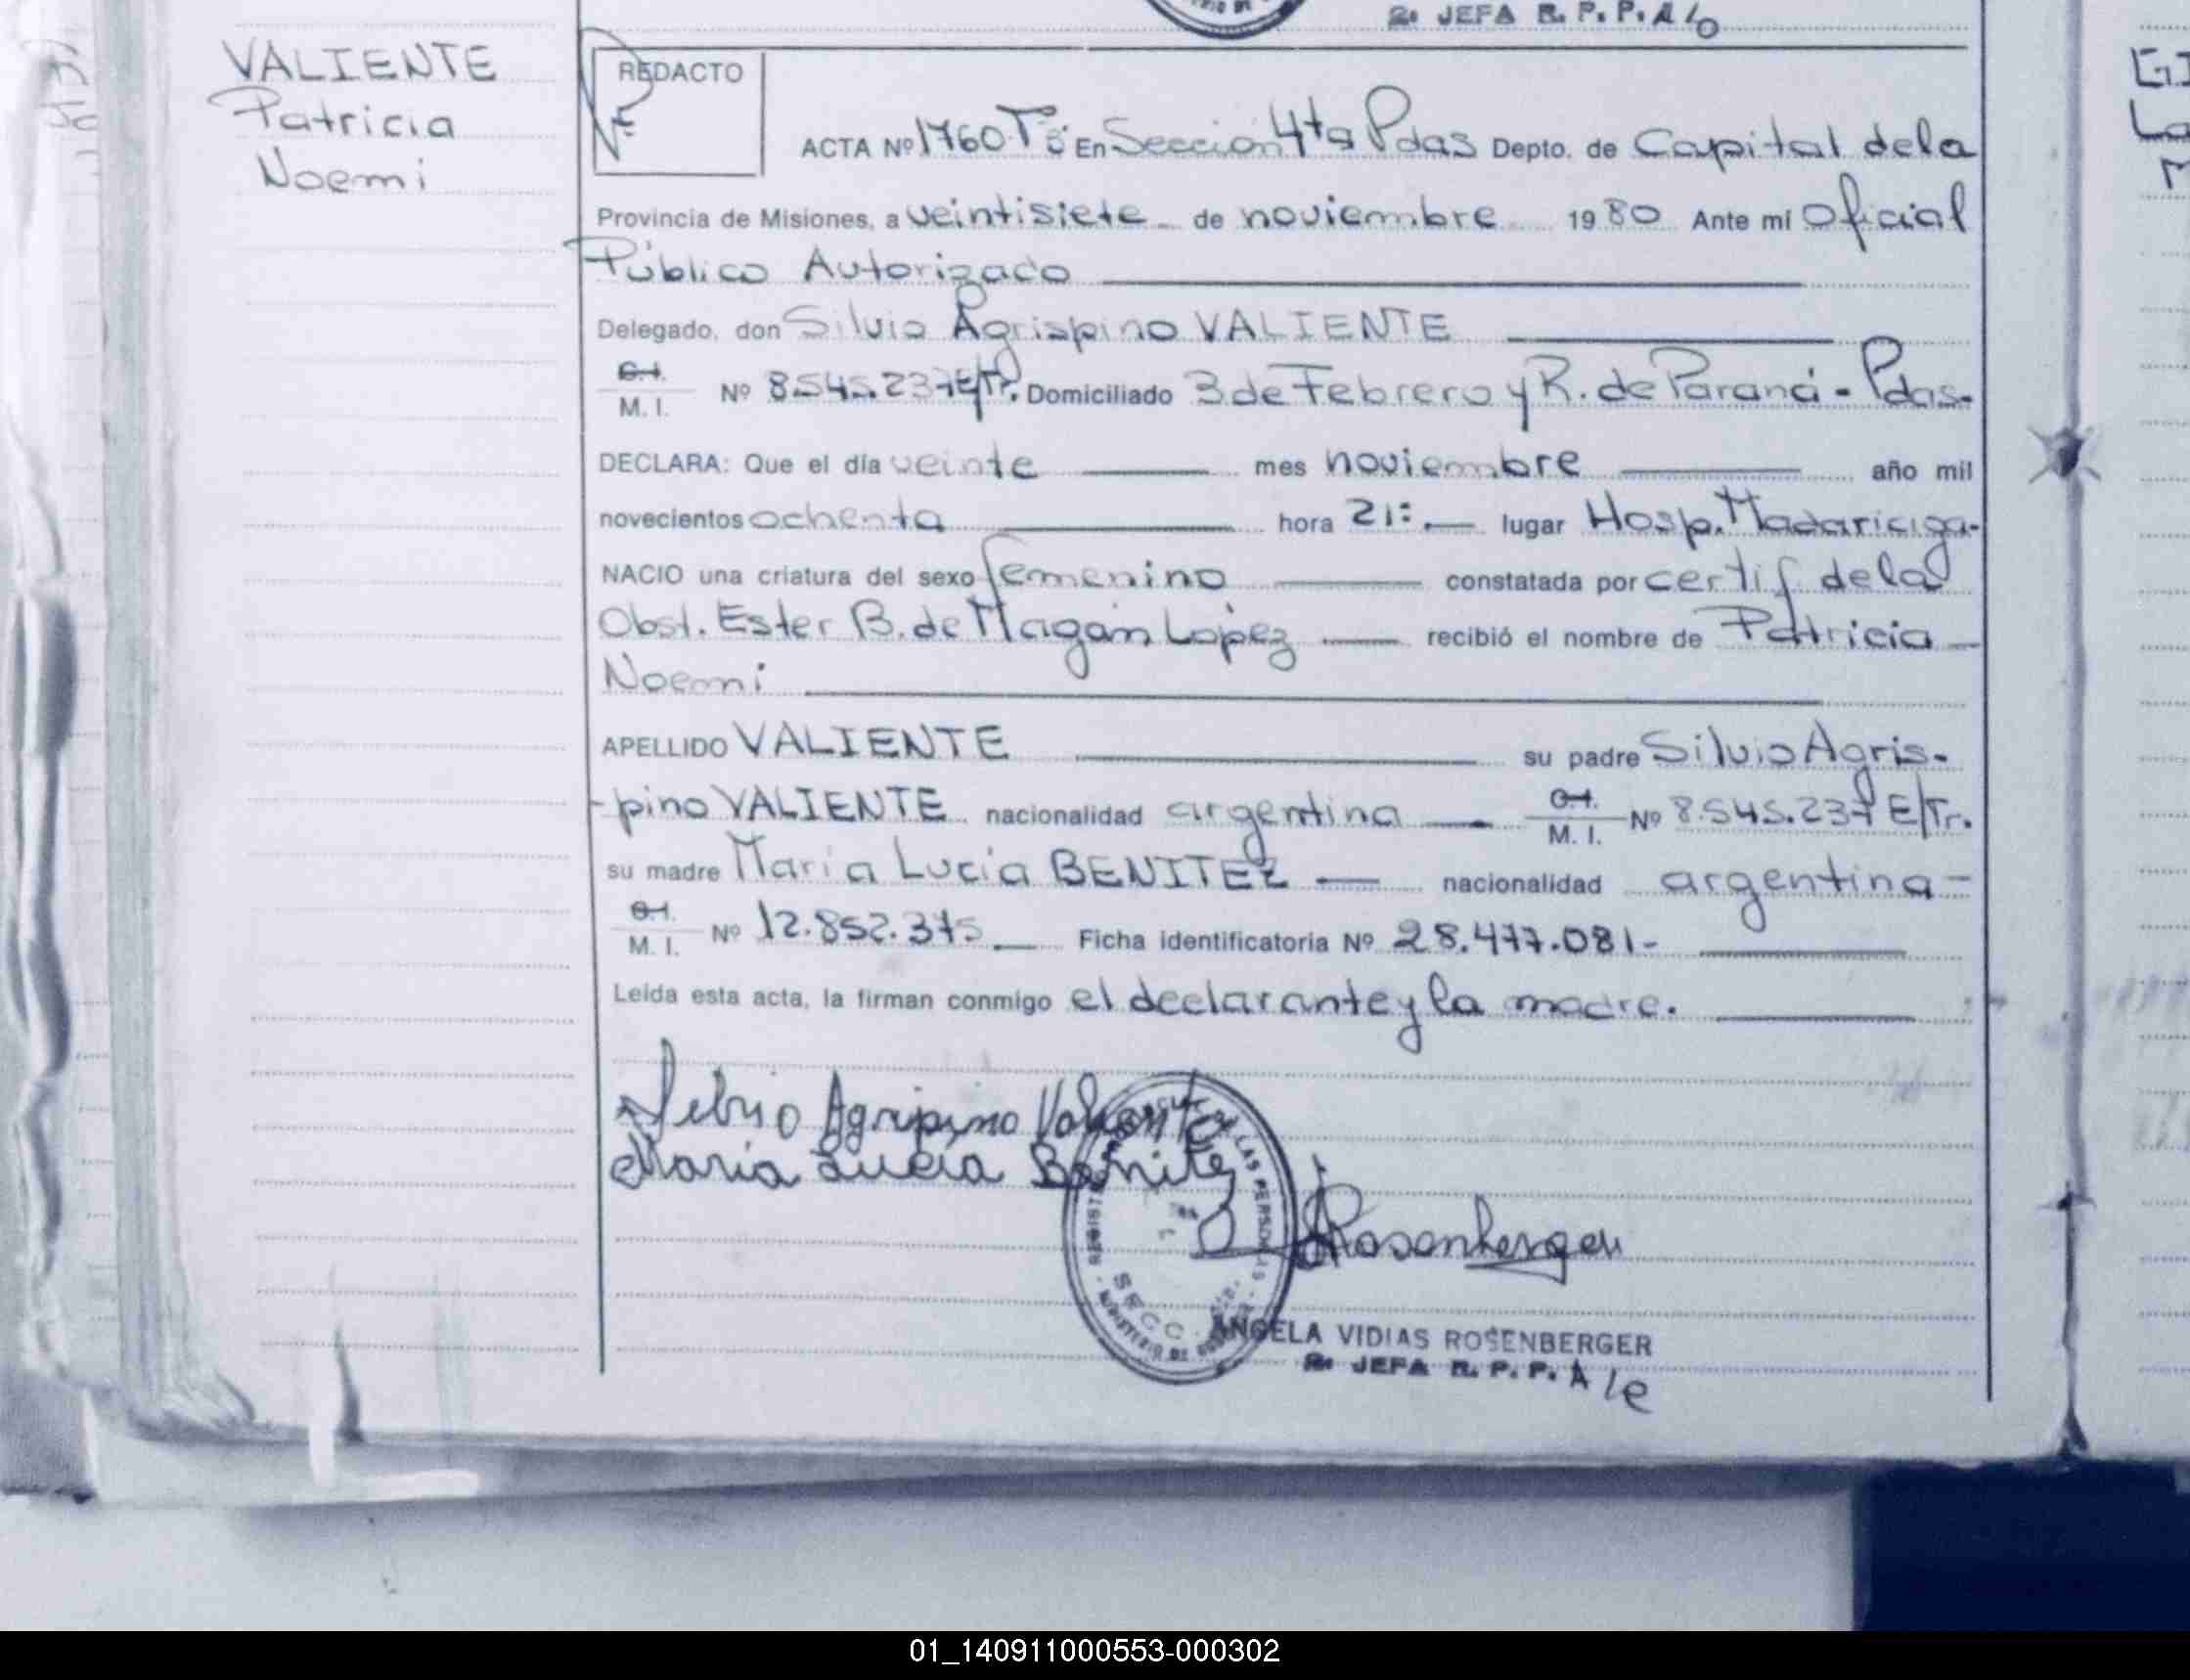 2º JEFA R. P. P. A lo
VALIENTE
Patricia
Noemi
REDACTO
ACTA Nº 1760 Tº 5º En Sección 4ta Pdas Depto. de Capital de la
Provincia de Misiones, a veintisiete de noviembre 1980 Ante mí Oficial
Público Autorizado
Delegado, don Silvio Agrispino VALIENTE
C.I.
M. I. Nº 8.545.237 E/Tr. Domiciliado 3 de Febrero y R. de Paraná - Pdas-
DECLARA: Que el día veinte mes noviembre año mil
novecientos ochenta hora 21: lugar Hosp. Madariaga-
NACIO una criatura del sexo femenino constatada por certif de la
Obst. Ester B. de Magán López recibió el nombre de Patricia
Noemi
APELLIDO VALIENTE su padre Silvio Agris-
-pino VALIENTE nacionalidad argentina C.I.
M. I. Nº 8.545.237 E/Tr.
su madre Maria Lucía BENITEZ nacionalidad argentina-
C.I.
M. I. Nº 12.852.375 Ficha identificatoria Nº 28.477.081-
Leída esta acta, la firman conmigo el declarante y la madre.
Silvio Agripino Valiente
Maria Lucía Benitez
Rosenberger
ANGELA VIDIAS ROSENBERGER
2º JEFA R. P. P. A le
01_140911000553-000302